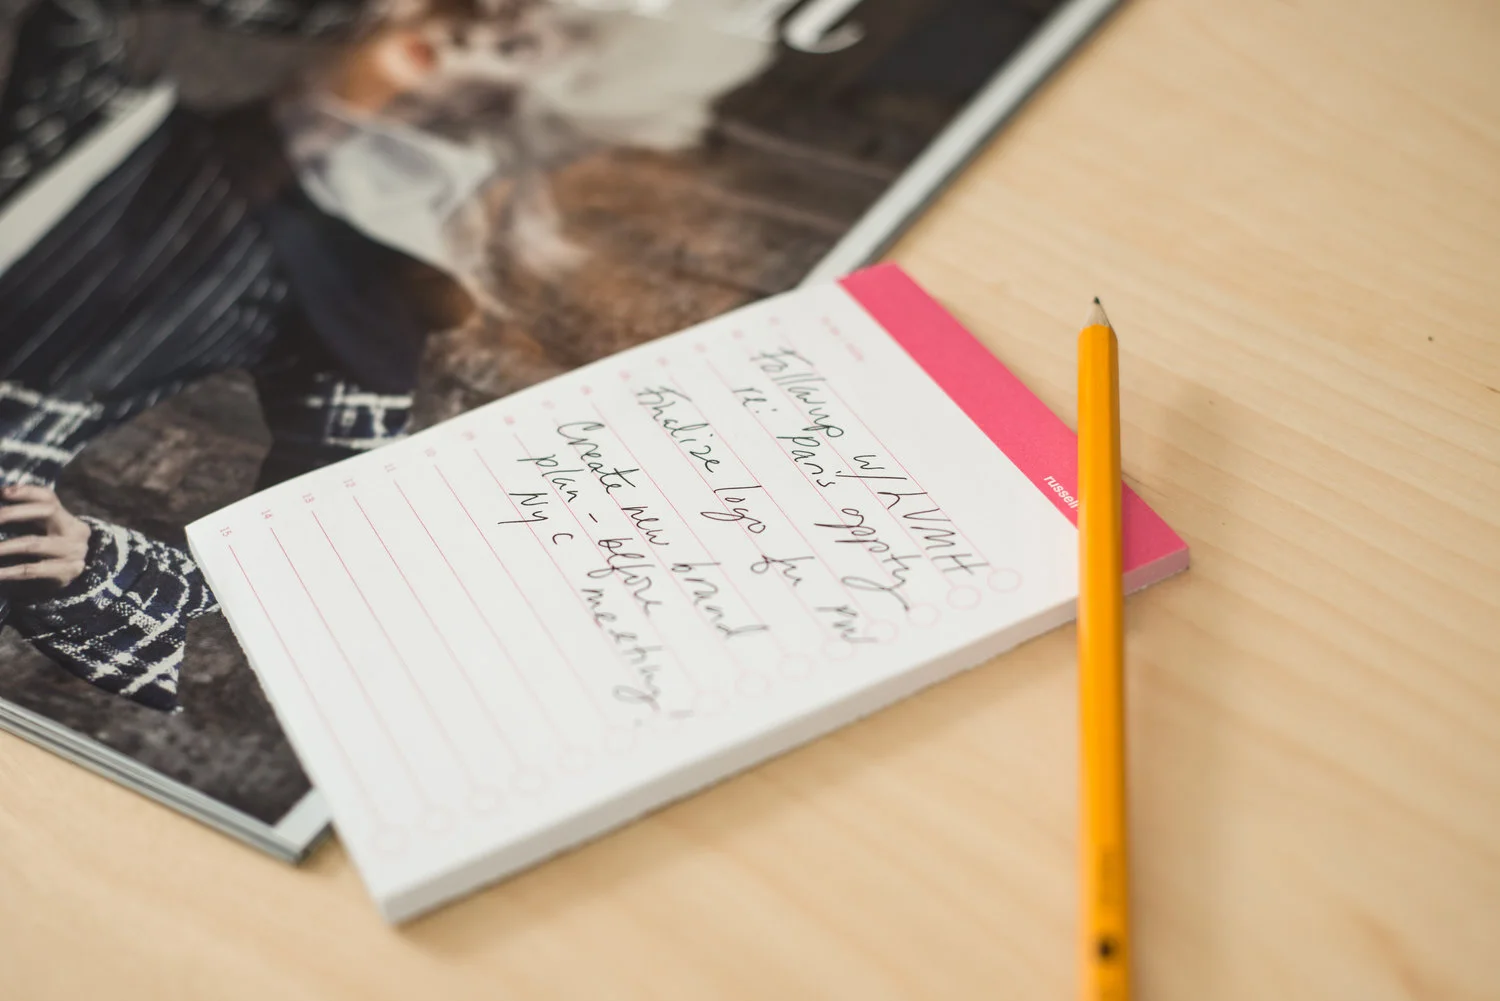 russell
Followup w/ LVMH
re: Paris oppty
Finalize logo for PW
Create new brand
plan - before
NYC meeting
10
11
12
13
14
15